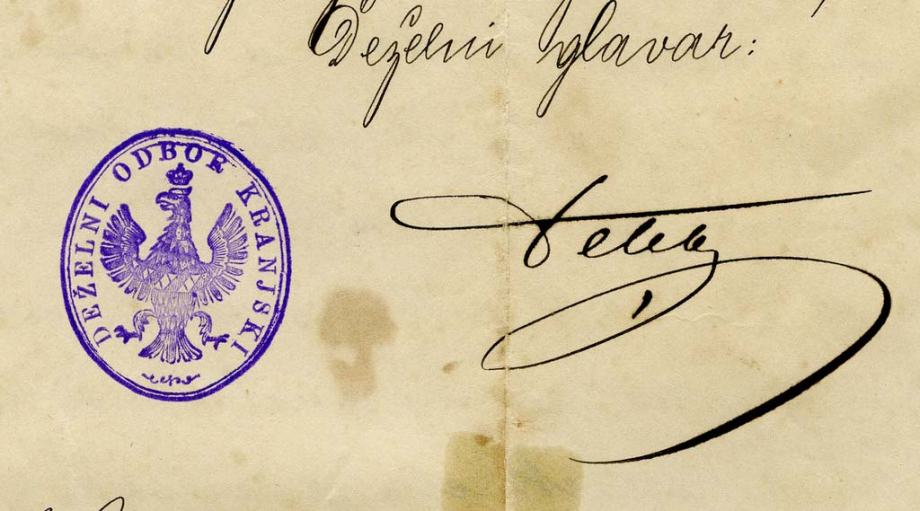 Deželni glavar:
DEŽELNI ODBOR KRANJSKI